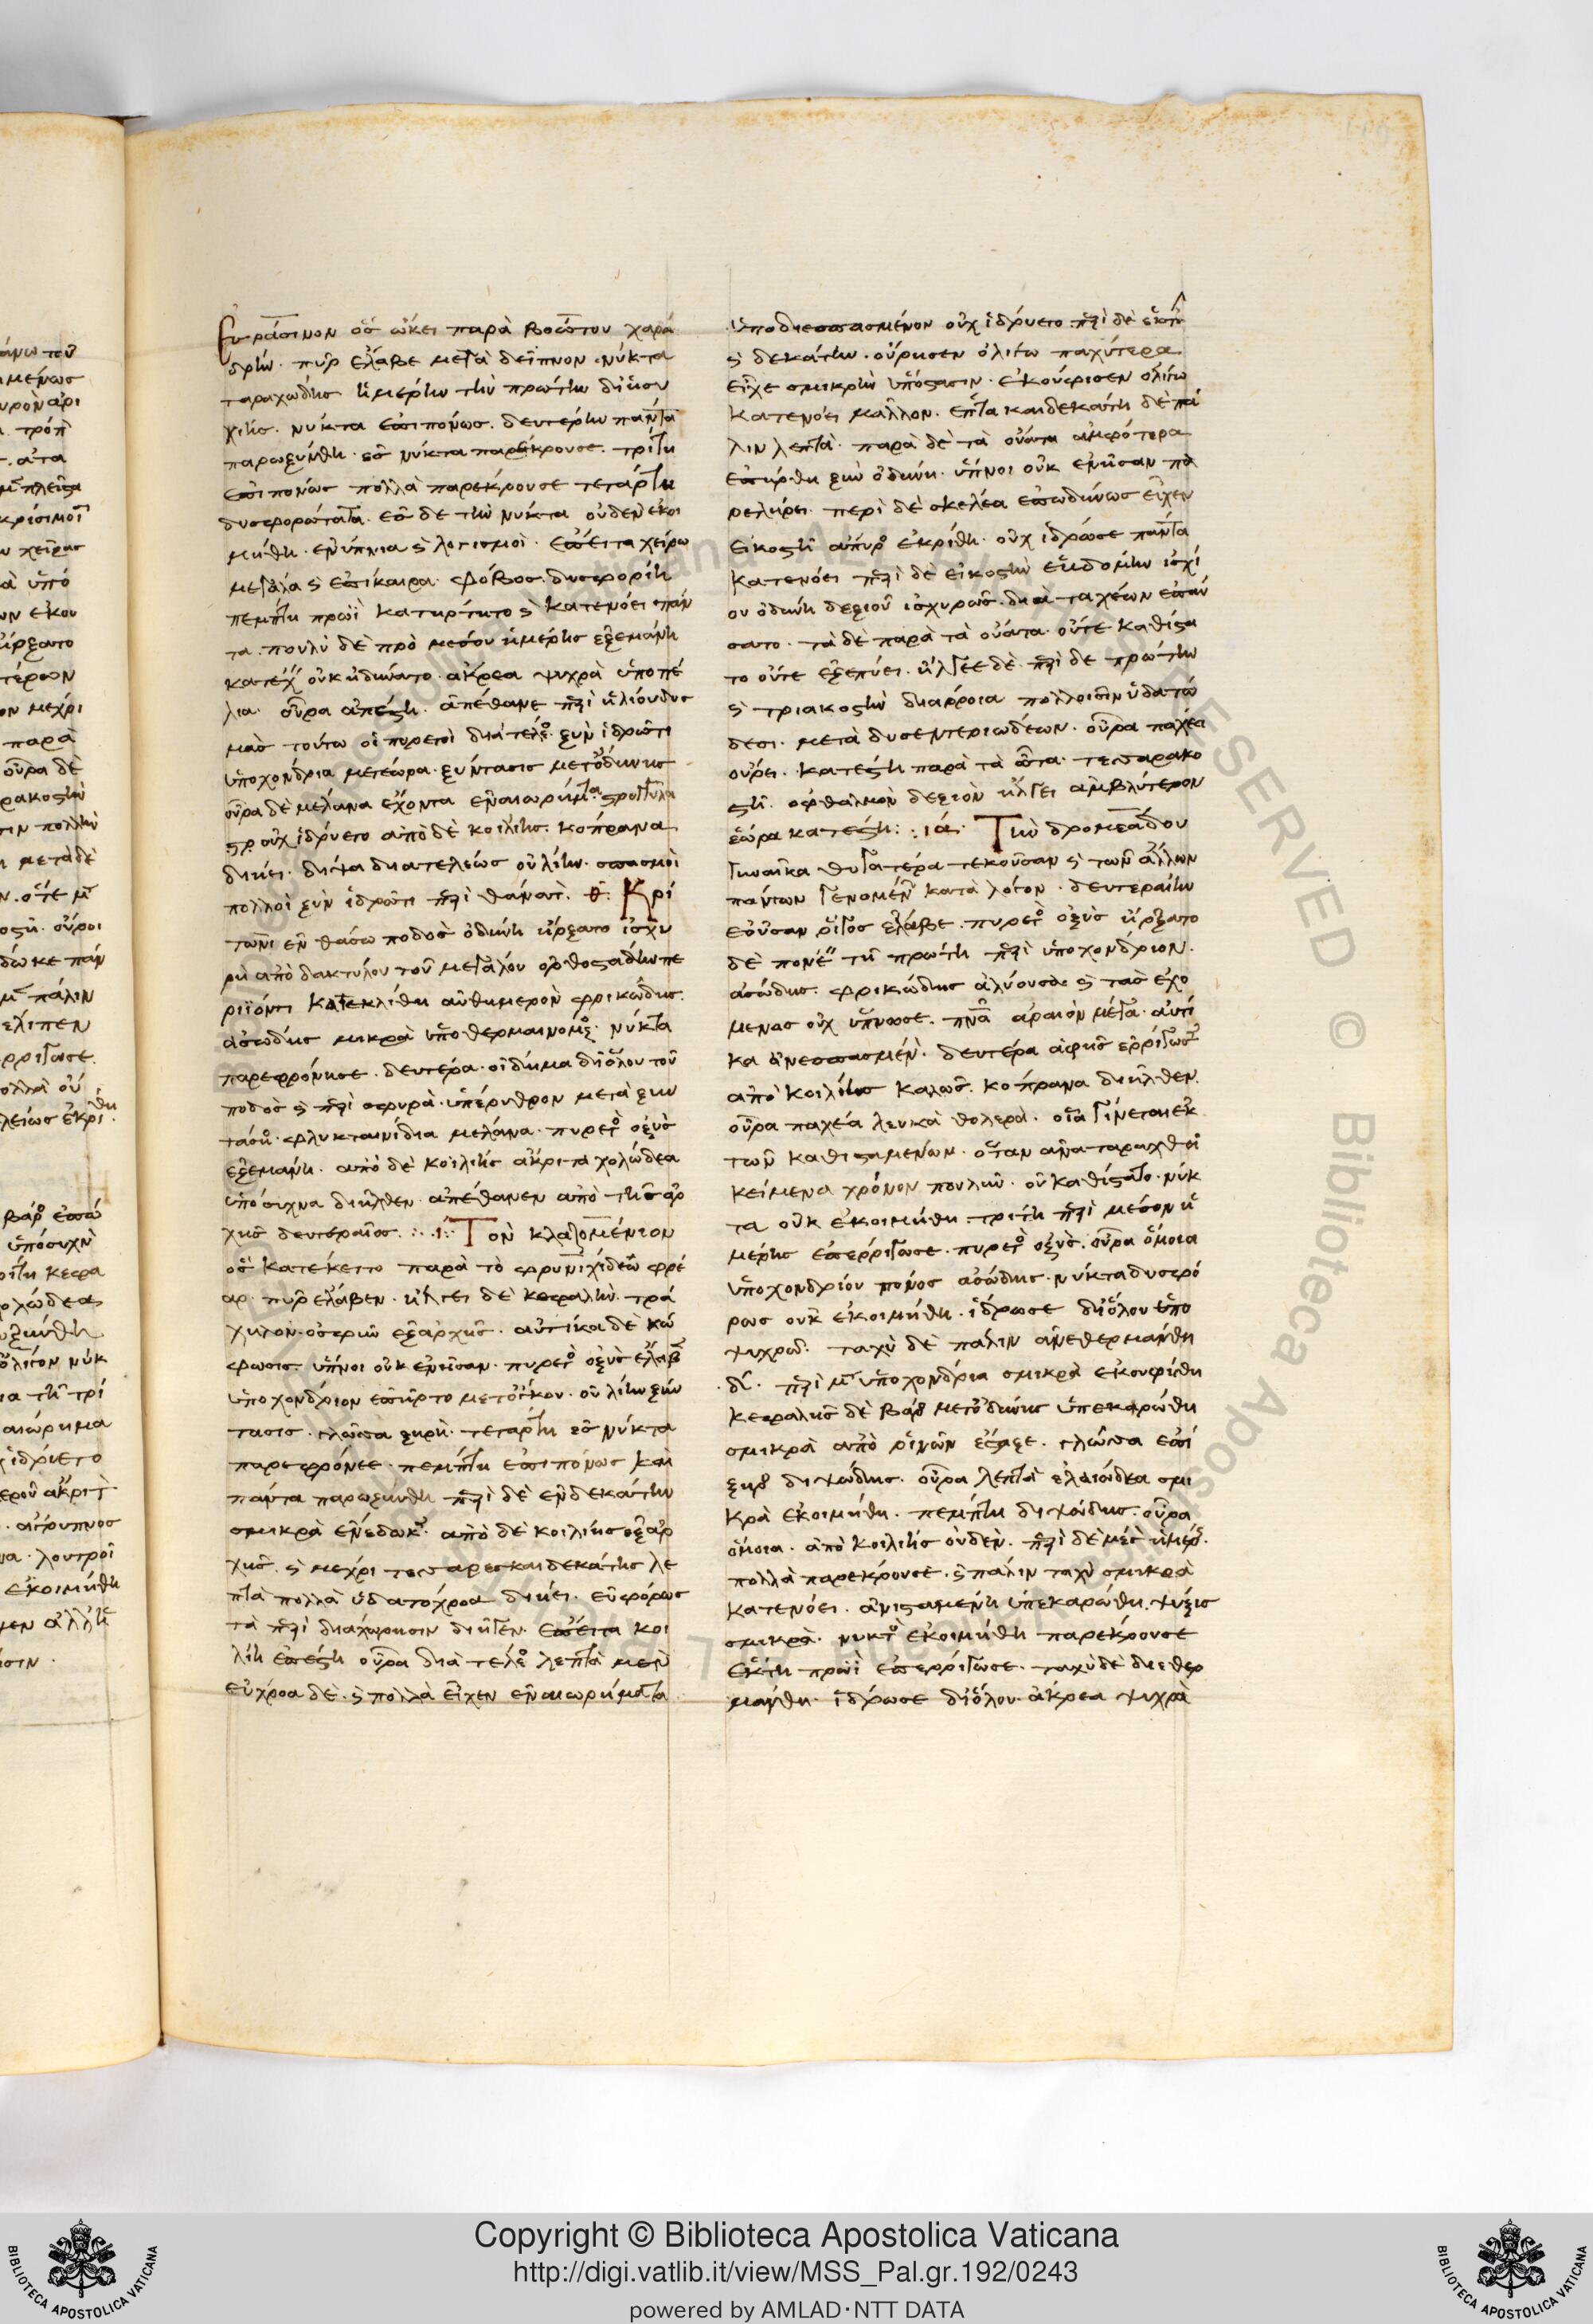 Ἐρασῖνον ὃς ᾤκει παρὰ βοώτου χαρά
δρην· πῦρ ἔλαβε μετὰ δεῖπνον· νύκτα
ταραχώδης ἡμέρην τὴν πρώτην διἡσυ
χίης· νύκτα ἐπιπόνως. δευτέρην πάντα
παρωξύνθη· ἐς νύκτα παρέκρουσε. τρίτη
ἐπιπόνως πολλὰ παρέκρουσε τετάρτη
δυσφορώτατα. ἐς δὲ τὴν νύκτα οὐδὲν ἐκοι
μήθη· ἐνύπνια ϛ λογισμοὶ· ἔπειτα χείρω
μεγάλα ϛ ἐπίκαιρα· φόβος. δυσφορίη
πέμπτη πρωῒ κατήρτητο ϛ κατενόει πάν
τα. πουλὺ δὲ πρὸ μέσου ἡμέρης ἐξεμάνη
κατέχ οὐκ ἠδύνατο· ἄκρεα ψυχρὰ ὑποπέ
λια· οὖρα ἀπέστη· ἀπέθανε περὶ ἡλίου δυς
μάς τούτω οἱ πυρετοὶ διὰ τέλους· ξὺν ἱδρῶτι
ὑποχόνδρια μετέωρα· ξύντασις μετ' ὀδύνης
οὖρα δὲ μέλανα ἔχοντα ἐναιωρήματα στρογγύλα
οὐχ ἱδρύετο ἀπὸ δὲ κοιλίης· κόπρανα
διήει· δίψα διατελέως οὐ λίην· σπασμοὶ
πολλοὶ ξὺν ἱδρῶτι περὶ θάνατον. θ· Κρί
τωνι ἐν θάσω ποδὸς ὀδύνη ἤρξατο ἰσχυ
ρὴ ἀπὸ δακτύλου τοῦ μεγάλου ὀρθοστάδην πε
ριϊόντι κατεκλίθη αὐθημερὸν φρικώδης·
ἀσώδης μικρὰ ὑποθερμαινόμενος· νύκτα
παρεφρόνησε· δευτέρα· οἴδημα δι' ὅλου τοῦ
ποδὸς ϛ περὶ σφυρὰ· ὑπέρυθρον μετὰ ξυν
τάσιος· φλυκταινίδια μέλανα· πυρετὸς ὀξὺς
ἐξεμάνη· ἀπὸ δὲ κοιλίης ἄκριτα χολώδεα
ὑπόσυχνα διῆλθεν· ἀπέθανεν ἀπὸ τῆς ἀρ
χῆς δευτεραῖος. ι· Τὸν κλαζομένιον
ὃς κατέκειτο παρὰ τὸ φρυνιχίδεω φρέ
αρ· πῦρ ἔλαβεν· ἤλγει δὲ κεφαλὴν· τρά
χηλον· ὀσφῦν ἐξ ἀρχῆς· αὐτίκα δὲ κώ
φωσις· ὕπνοι οὐκ ἐνῆσαν· πυρετὸς ὀξὺς ἔλαβεν
ὑποχόνδριον ἐπῆρτο μετ' ὄγκου· οὐ λίην ξύν
τασις· γλῶσσα ξηρή· τετάρτη ἐς νύκτα
παρεφρόνεε· πέμπτη ἐπιπόνως καὶ
πάντα παρωξύνθη περὶ δὲ ἐνδεκάτην
σμικρὰ ἐνέδωκε· ἀπὸ δὲ κοιλίης ἐξ ἀρ
χῆς· ϛ μέχρι τεσσαρεσκαιδεκάτης λε
πτὰ πολλὰ ὑδατόχροα διήει· εὐφόρως
τὰ περὶ διαχώρησιν διῆγεν· ἔπειτα κοι
λίη ἐπέστη οὖρα διὰ τέλους λεπτὰ μὲν
εὔχροα δὲ· ϛ πολλὰ εἶχεν ἐναιωρήματα
ὑποδιεσπασμένον οὐχ ἱδρύετο περὶ δὲ ἕκτην
ϛ δεκάτην· οὔρησεν ὀλίγω παχύτερα
εἶχε σμικρὴν ὑπόστασιν· ἐκούφισεν ὀλίγω
κατενόει μᾶλλον· ἑπτακαιδεκάτη δὲ πά
λιν λεπτὰ· παρὰ δὲ τὰ οὔατα ἀμφότερα
ἐπήρθη ξὺν ὀδύνη· ὕπνοι οὐκ ἐνῆσαν πα
ρελήρει· περὶ δὲ σκέλεα ἐπωδύνως εἶχεν
εἰκοστῆ ἄπυρος ἐκρίθη· οὐχ ἵδρωσε πάντα
κατενόει περὶ δὲ εἰκοστὴν ἑβδόμην ἰσχί
ου ὀδύνη δεξιοῦ ἰσχυρῶς· διὰ ταχέων ἐπαύ
σατο· τὰ δὲ παρὰ τὰ οὔατα· οὔτε καθίστα
το οὔτε ἐξεπύει· ἤλγεε δὲ· περὶ δὲ πρώτην
ϛ τριακοστὴν διάρροια πολλοῖσιν ὑδατώ
δεσι· μετὰ δυσεντεριωδέων· οὖρα παχέα
οὔρει· κατέστη παρὰ τὰ ὦτα· τεσσαρακο
στῆ· ὀφθαλμὸν δεξιὸν ἤλγει ἀμβλύτερον
ἑώρα κατέστη: ·ια· Τὴν δρομεάδου
γυναῖκα θυγατέρα τεκοῦσαν ϛ τῶν ἄλλων
πάντων γενομένων κατὰ λόγον· δευτεραίην
ἐοῦσαν ῥῖγος ἔλαβε· πυρετὸς ὀξὺς ἤρξατο
δὲ πονέειν τῆ πρώτη περὶ ὑποχόνδριον·
ἀσώδης· φρικώδης ἀλύουσα ϛ τὰς ἐχο
μένας οὐχ ὕπνωσε· πνα ἀραιὸν μέγα· αὐτί
κα ἀνεσπασμένον· δευτέρα ἀφ' ἧς ἐρρίγωσεν
ἀπὸ κοιλίης καλῶς· κόπρανα διῆλθεν
οὖρα παχέα λευκὰ θολερὰ· οἷα γίνεται ἐκ
τῶν καθισταμένων· ὅταν ἀναταραχθῆ
κείμενα χρόνον πουλύν· οὐ καθίστατο· νύκ
τα οὐκ ἐκοιμήθη· τρίτη περὶ μέσον ἡ
μέρης ἐπερρίγωσε· πυρετὸς ὀξὺς· οὖρα ὅμοια
ὑποχονδρίου πόνος ἀσώδης· νύκτα δυσφό
ρως οὐκ ἐκοιμήθη· ἵδρωσε δι' ὅλου ὑπο
ψυχρος· ταχὺ δὲ πάλιν ἀνεθερμάνθη
·δ· περὶ μὲν ὑποχόνδρια σμικρὰ ἐκουφίσθη
κεφαλῆς δὲ βάρος μετ' ὀδύνης ὑπεκαρώθη
σμικρὰ ἀπὸ ῥινῶν ἔσταξε· γλῶσσα ἐπί
ξηρος διψώδης· οὖρα λεπτὰ ἐλαιώδεα σμι
κρὰ ἐκοιμήθη· πέμπτη διψώδης· οὖρα
ὅμοια· ἀπὸ κοιλίης οὐδὲν· περὶ δὲ μέσον ἡμέρης·
πολλὰ παρέκρουσε· ϛ πάλιν ταχὺ σμικρὰ
κατενόει· ἀνισταμένη ὑπεκαρώθη· ψύξις
σμικρὰ· νυκτὸς ἐκοιμήθη παρέκρουσε
ἕκτη πρωῒ ἐπερρίγωσε· ταχὺ δὲ διεθερ
μάνθη· ἵδρωσε δι' ὅλου· ἄκρεα ψυχρὰ
Copyright © Biblioteca Apostolica Vaticana
http://digi.vatlib.it/view/MSS_Pal.gr.192/0243
powered by AMLAD·NTT DATA